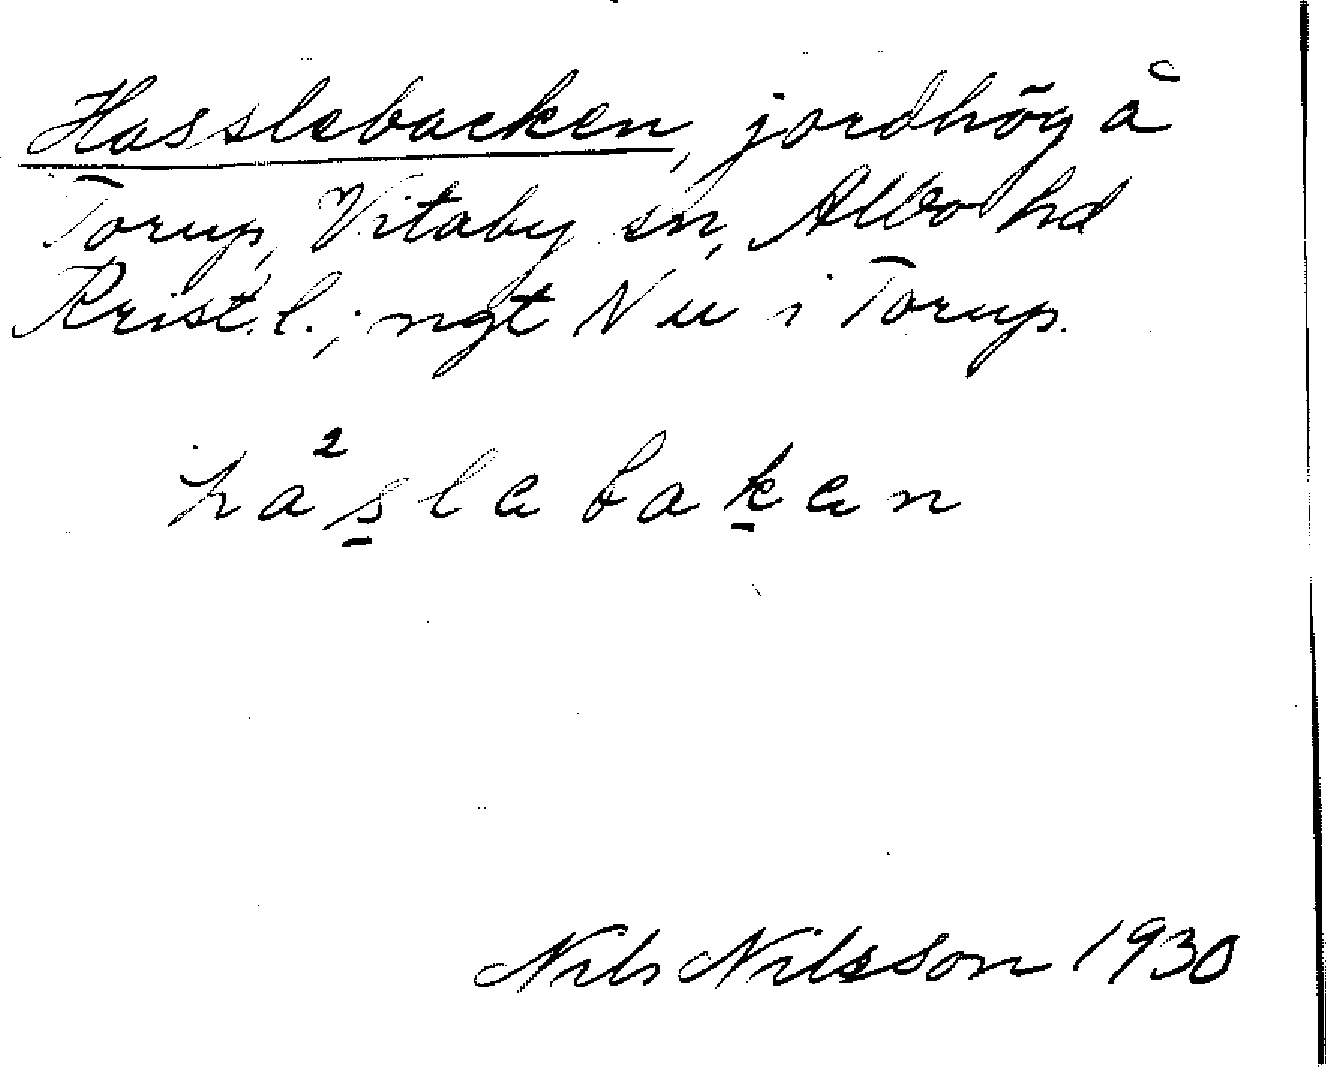 Hasslebacken, jordhög å
Torup, Vitaby sn, Albo hd
Krist. l.; ngt N u i Torup.
ha²s̠lebak̠en
Nils Nilsson 1930